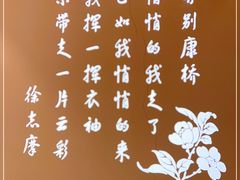 再别康桥
悄悄的我走了
正如我悄悄的来
我挥一挥衣袖
不带走一片云彩
徐志摩